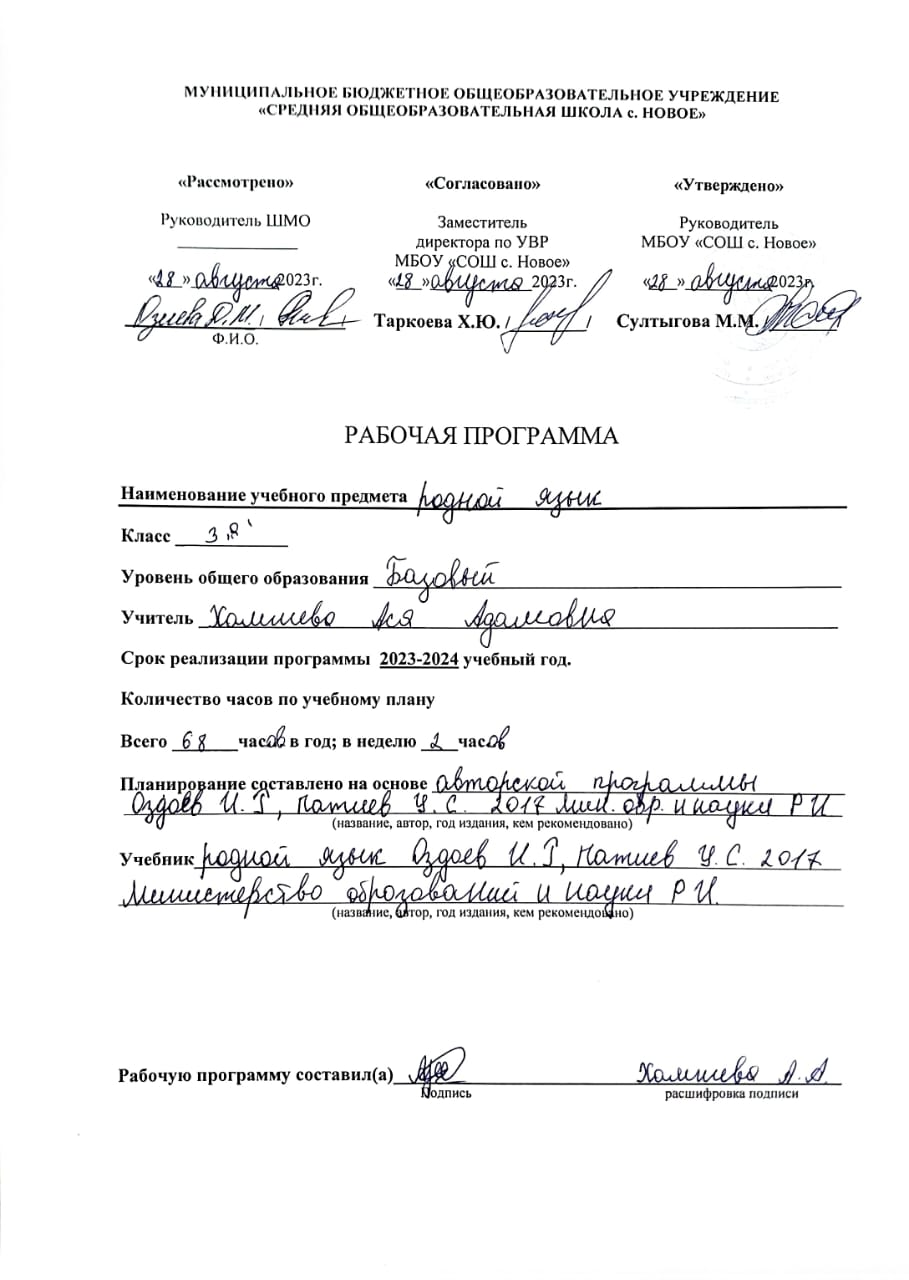 МУНИЦИПАЛЬНОЕ БЮДЖЕТНОЕ ОБЩЕОБРАЗОВАТЕЛЬНОЕ УЧРЕЖДЕНИЕ
«СРЕДНЯЯ ОБЩЕОБРАЗОВАТЕЛЬНАЯ ШКОЛА с. НОВОЕ»
«Рассмотрено»
Руководитель ШМО
«28» августа 2023г.
Ф.И.О.
«Согласовано»
Заместитель
директора по УВР
МБОУ «СОШ с. Новое»
«28» августа 2023г.
Таркоева Х.Ю. / /
«Утверждено»
Руководитель
МБОУ «СОШ с. Новое»
«28» августа 2023г.
Султыгова М.М. /
РАБОЧАЯ ПРОГРАММА
Наименование учебного предмета родной язык
Класс 3
Уровень общего образования Базовый
Учитель Хамиева Ася Адамовна
Срок реализации программы 2023-2024 учебный год.
Количество часов по учебному плану
Всего 68 часов в год; в неделю 2 часов
Планирование составлено на основе авторской программы
Оздоев И. Г, Матиев У. С. 2017 Мин. обр. и науки Р И
(название, автор, год издания, кем рекомендовано)
Учебник родной язык Оздоев И. Г, Матиев У. С. 2017
Министерство образований и науки Р И.
(название, автор, год издания, кем рекомендовано)
Рабочую программу составил(а) Хамиева А. А.
Подпись расшифровка подписи